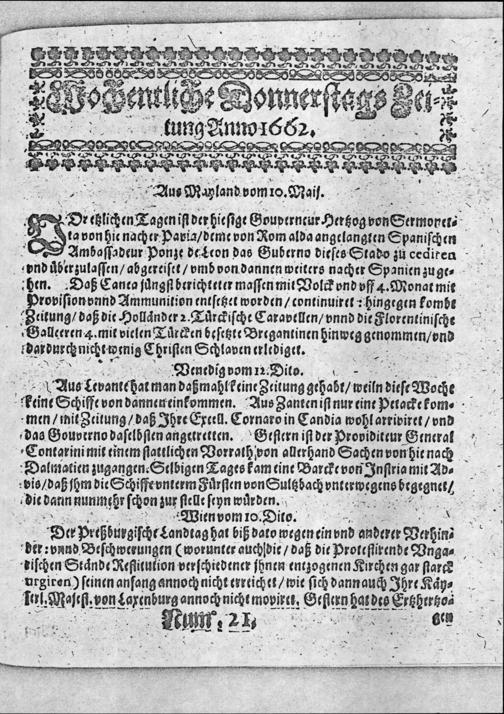 Wochentliche Donnerstags Zei-
tung Anno 1662.
Aus Mayland vom 10. Maij.
VOr etzlichen Tagen ist der hiesige Gouverneur Hertzog von Sermonet-
ta von hie nacher Pavia/ deme von Rom alda angelangten Spanischen
Ambassadeur Ponze de Leon das Guberno dieses Stado zu cediren
vnd überzulassen/ abgereiset/ vmb von dannen weiters nacher Spanien zu ge-
hen. Daß Canea jüngst berichteter massen mit Volck vnd vff 4. Monat mit
Provision vnnd Ammunition entsetzet worden/ continuiret: hingegen kombt
Zeitung/ daß die Holländer 2. Türckische Caravellen/ vnnd die Florentinische
Galleeren 4. mit vielen Türcken besetzte Bregantinen hinweg genommen/ vnd
dardurch nicht wenig Christen Schlaven erlediget.
Venedig vom 12. Dito.
Aus Levante hat man daßmahl keine Zeitung gehabt/ weiln diese Woche
keine Schiffe von dannen einkommen. Aus Zanten ist nur eine Petacke kom-
men/ mit Zeitung/ daß Ihre Excell. Cornaro in Candia wohl arriviret/ vnd
das Gouverno daselbsten angetretten. Gestern ist der Providiteur General
Contarini mit einem stattlichen Vorrath von allerhand Sachen von hie nach
Dalmatien zugangen. Selbigen Tages kam eine Barcke von Instria mit Ad-
vis/ daß jhm die Schiffe vnterm Fürsten von Sultzbach vnterwegens begegnet/
die dann nunmehr schon zur stelle seyn würden.
Wien vom 10. Dito.
Der Preßburgische Landtag hat biß dato wegen ein vnd anderer Verhin-
der: vnnd Beschwerungen (worunter auch die/ daß die Protestirende Vnga-
rischen Stände Restitution verschiedener jhnen entzogenen Kirchen gar starck
urgiren) seinen anfang annoch nicht erreichet/ wie sich dann auch Ihre Käy-
serl. Majest. von Laxenburg annoch nicht moviret. Gestern hat des Ertzhertzo-
Num. 21. gen